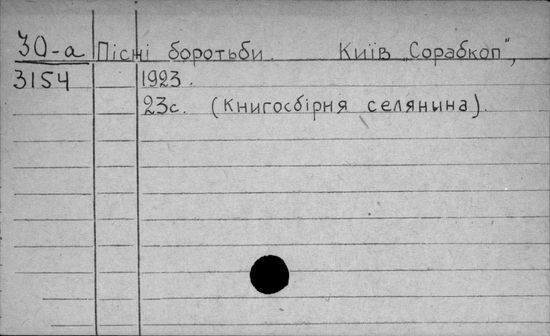 30-а Пісні боротьби. Київ „Сорабкоп",
3154 1923.
23с. (Книгосбірня селянына).